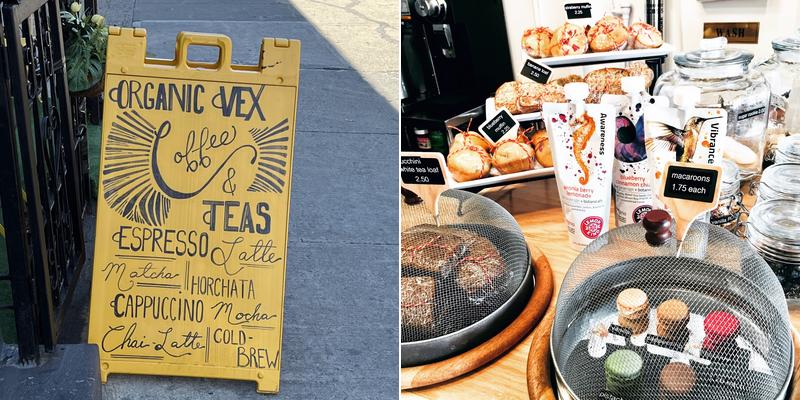 ORGANIC VEX
Coffee
&
TEAS
ESPRESSO Latte
Matcha HORCHATA
CAPPUCCINO Mocha
Chai-Latte COLD-
BREW
strawberry muffin
2.25
banana loaf
2.50
blueberry
muffin
2.25
zucchini
white tea loaf
2.50
Awareness
lemonade
blueberry
cinnamon chai
Vibrance
macaroons
1.75 each
WASH